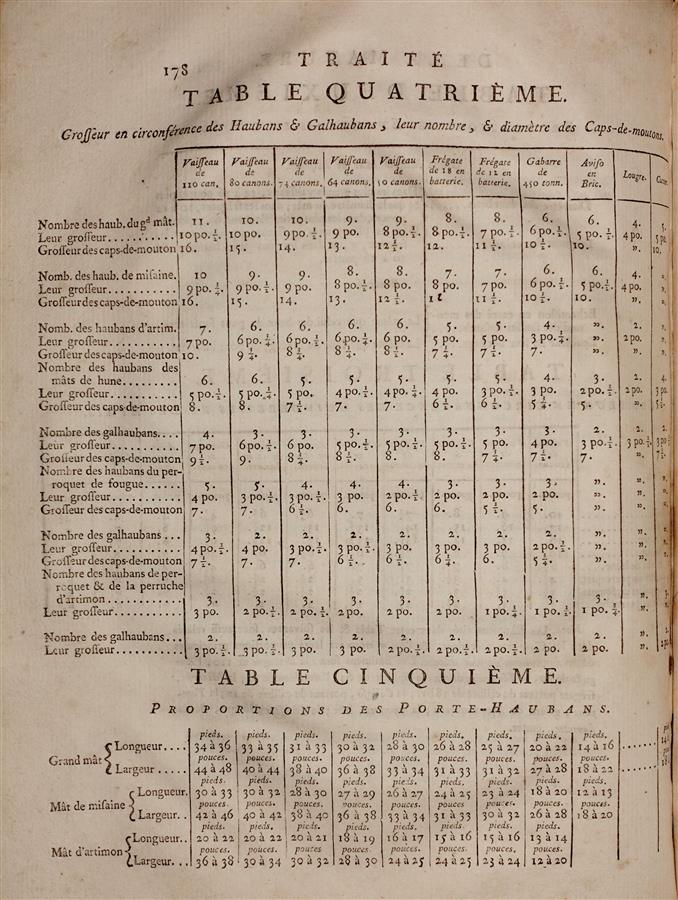 178 TRAITÉ
TABLE QUATRIÈME.
Groſſeur en circonférence des Haubans & Galhaubans, leur nombre, & diamètre des Caps-de-moutons.
Vaiſſeau de 110 can. Vaiſſeau de 80 canons. Vaiſſeau de 74 canons. Vaiſſeau de 64 canons. Vaiſſeau de 50 canons. Frégate de 18 en batterie. Frégate de 12 en batterie. Gabarre de 450 tonn. Aviſo en Bric. Lougre.
Nombre des haub. du gd mât. 11. 10. 10. 9. 9. 8. 8. 6. 6. 4. 5.
Leur groſſeur........... 10 po. ½. 10 po. 9 po. ½. 9 po. 8 po. ½. 8 po. ½. 7 po. ½. 6 po. ½. 5 po. ½. 4 po. 5 po.
Groſſeur des caps-de-mouton 16. 15. 14. 13. 12 ½. 12. 11 ½. 10 ½. 10. ». 10.
Nomb. des haub. de miſaine. 10 9. 9. 8. 8. 7. 7. 6. 6. 4.
Leur groſſeur........... 9 po. ¼. 9 po. ½. 9 po. 8 po. ½. 8 po. 8 po. 7 po. 6 po. ½. 5 po. ½. 4 po. ».
Groſſeur des caps-de-mouton 16. 15. 14. 13. 12 ½. 11 ½. 10 ½. 10. ». ».
Nomb. des haubans d'artim. 7. 6. 6. 6. 6. 5. 5. 4. ». 2. ».
Leur groſſeur........... 7 po. 6 po. ½. 6 po. ½. 6 po. ¼. 6 po. 5 po. 5 po. 3 po. ¼. ». 2 po. ».
Groſſeur des caps-de-mouton 10. 9 ¼. 8 ½. 8 ¼. 8 ½. 7 ¼. 7 ½. 7. ». ». ».
Nombre des haubans des
mâts de hune......... 6. 6. 5. 5. 5. 5. 5. 4. 3. 2. 4.
Leur groſſeur........... 5 po. ½. 5 po. ¼. 5 po. 4 po. ½. 4 po. ½. 4 po. 3 po. ½. 3 po. 2 po. ½. 2 po. 3 po.
Groſſeur des caps-de-mouton 8. 8. 7 ½. 7. 7. 6 ½. 6 ½. 5 ¼. 5. ». 5 ½.
Nombre des galhaubans.... 4. 3. 3. 3. 3. 3. 3. 3. 2. 2. 2.
Leur groſſeur........... 7 po. 6 po. ½. 6 po. 5 po. ½. 5 po. ½. 5 po. ½. 5 po. 4 po. 3 po. ½. 3 po. ½. 3 po
Groſſeur des caps-de-mouton 9 ½. 9. 8 ¼. 8 ½. 8. 8. 7 ¼. 7 ½. 7. ». 7 ½.
Nombre des haubans du per-
roquet de fougue...... 5. 5. 4. 4. 4. 3. 3. 3. ». ». ».
Leur groſſeur........... 4 po. 3 po. ½. 3 po. ½. 3 po. 2 po. ½. 2 po. 2 po. 2 po. ». ». ».
Groſſeur des caps-de-mouton 7. 7. 6 ½. 6. 6. 6. 5 ½. 5. ». ». ».
Nombre des galhaubans... 3. 2. 2. 2. 2. 2. 2. 2. ». ». ».
Leur groſſeur........... 4 po. ½. 4 po. 3 po. ½. 3 po. ½. 3 po. ½. 3 po. 3 po. 2 po. ½. ». ». ».
Groſſeur des caps-de-mouton 7 ½. 7. 7. 6 ½. 6 ½. 6 ¼. 6. 5 ¼. ». ». ».
Nombre des haubans de per-
roquet & de la perruche
d'artimon........... 3. 3. 3. 3. 3. 3. 3. 3. 3. ». ».
Leur groſſeur........... 3 po. 2 po. ½. 2 po. ½. 2 po. 2 po. 2 po. 1 po. ¼. 1 po. ½. 1 po. ¼. ». ».
Nombre des galhaubans... 2. 2. 2. 2. 2. 2. 2. 2. 2. ». ».
Leur groſſeur........... 3 po. ½. 3 po. ½. 3 po. ½. 3 po. 3 po. ½. 2 po. ½. 2 po. ½. 2 po. ½. 2 po. ». ».
TABLE CINQUIÈME.
PROPORTIONS DES PORTE-HAUBANS.
pieds. pieds. pieds. pieds. pieds. pieds. pieds. pieds. pieds.
Grand mât Longueur.... 34 à 36 33 à 35 31 à 33 30 à 32 28 à 30 26 à 28 25 à 27 20 à 22 14 à 16
pouces. pouces. pouces. pouces. pouces. pouces. pouces. pouces. pouces.
Largeur..... 44 à 48 40 à 44 38 à 40 36 à 38 33 à 34 31 à 33 31 à 32 27 à 28 18 à 22
pieds. pieds. pieds. pieds. pieds. pieds. pieds. pieds. pieds.
Mât de miſaine Longueur. 30 à 33 30 à 32 28 à 30 27 à 29 26 à 27 24 à 25 23 à 24 18 à 20 12 à 13
pouces. pouces. pouces. pouces. pouces. pouces. pouces. pouces. pouces.
Largeur.. 42 à 46 40 à 42 38 à 40 36 à 38 33 à 34 31 à 33 30 à 32 26 à 28 18 à 20
pieds. pieds. pieds. pieds. pieds. pieds. pieds. pieds.
Mât d'artimon Longueur.. 20 à 22 20 à 22 20 à 21 18 à 19 16 à 17 15 à 16 15 à 16 13 à 14
pouces. pouces. pouces pouces. pouces. pouces. pouces. pouces.
Largeur... 36 à 38 30 à 34 30 à 32 28 à 30 24 à 25 24 à 25 23 à 24 12 à 20